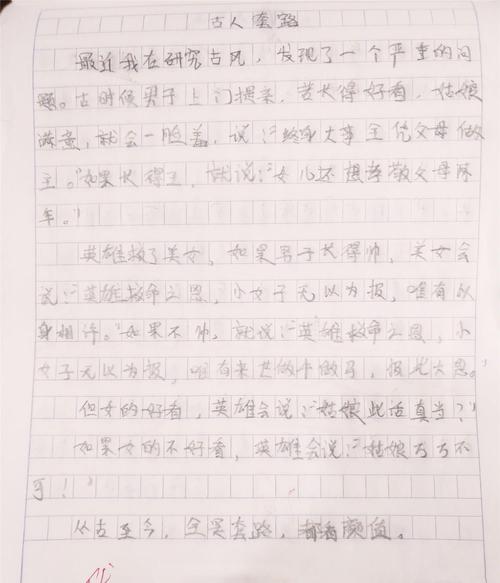 古人套路
最近我在研究古风，发现了一个严重的问
题。古时候男子上门提亲，若长得好看，姑娘
满意，就会一脸羞，说：“终身大事全凭父母做
主。”如果长得丑，就说：“女儿还想孝敬父母两
年。”
英雄救了美女，如果男子长得帅，美女会
说：“英雄救命之恩，小女子无以为报，唯有以
身相许。”如果不帅，就说：“英雄救命之恩，小
女子无以为报，唯有来世做牛做马，报此大恩。”
但女的好看，英雄会说：“姑娘此话真当？”
如果女的不好看，英雄会说：“姑娘万万不
可！”
从古至今，全是套路，都看颜值。